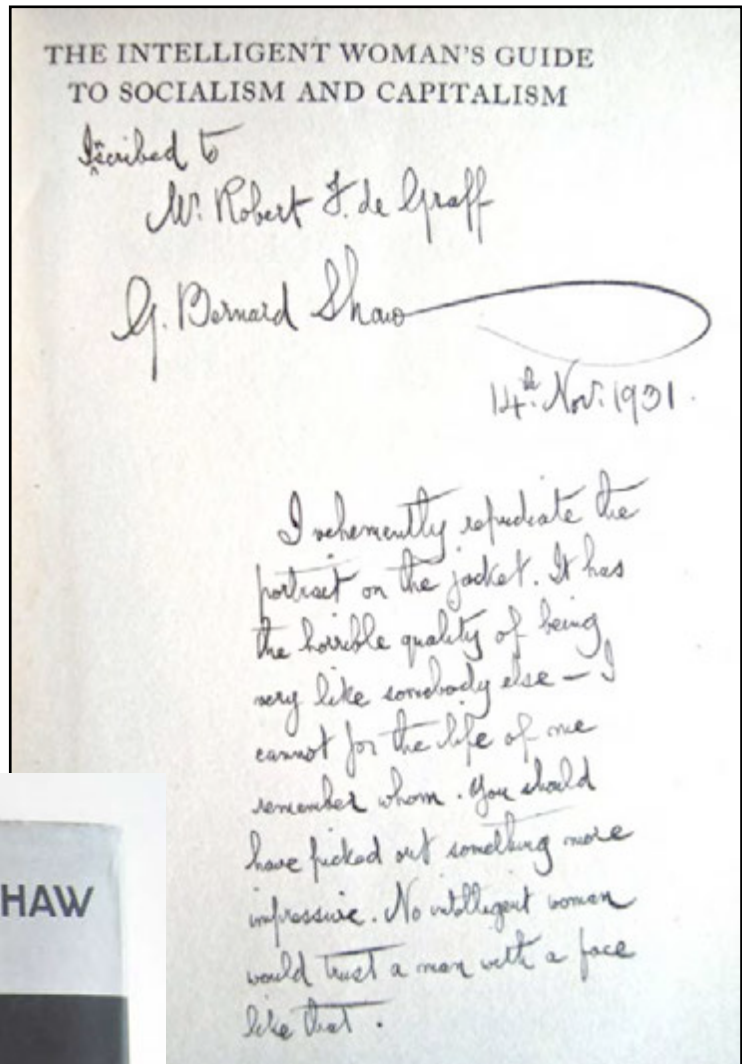 THE INTELLIGENT WOMAN'S GUIDE
TO SOCIALISM AND CAPITALISM
Iscribed to
^
Mr. Robert F. de Graff
G. Bernard Shaw
14th Nov: 1931.
I vehemently repudiate the
portrait on the jacket. It has
the horrible quality of being
very like somebody else – I
cannot for the life of me
remember whom. You should
have picked out something more
impressive. No intelligent woman
would trust a man with a face
like that.
HAW